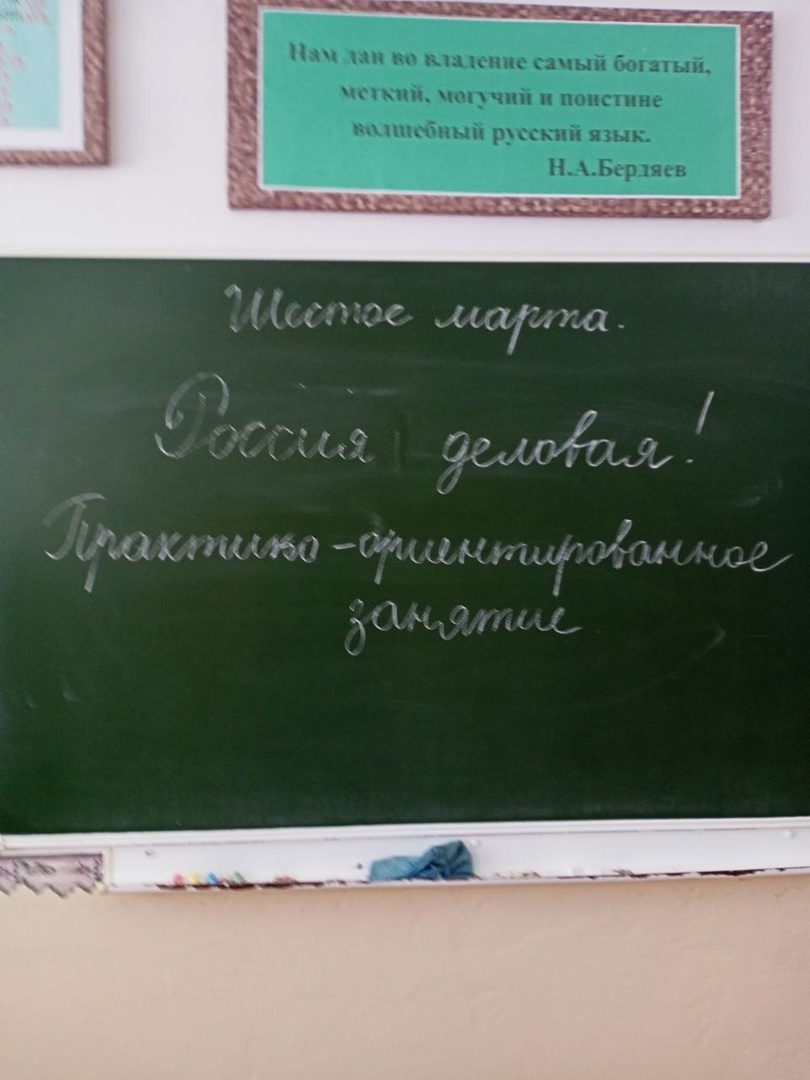 Нам дан во владение самый богатый,
меткий, могучий и поистине
волшебный русский язык.
Н.А.Бердяев
Шестое марта.
Россия деловая!
Практико-ориентированное
занятие